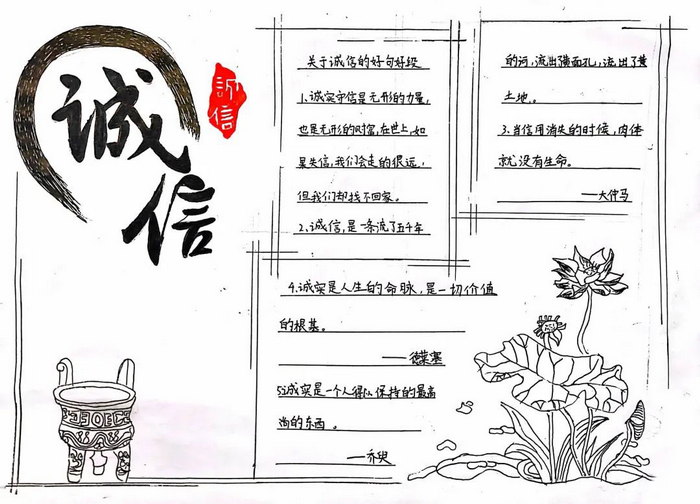 诚信
誠信
关于诚信的好句好段
1、诚实守信是无形的力量,
也是无形的财富,在世上,如
果失信,我们会走的很远,
但我们却找不回家。
2、诚信,是一条流了五千年
的河,流出黄面孔,流出了黄
土地。
3、当信用消失的时候,肉体
就没有生命。
——大仲马
4.诚实是人生的命脉,是一切价值
的根基。
——德莱塞
5诚实是一个人得以保持的最高
尚的东西。
——乔叟